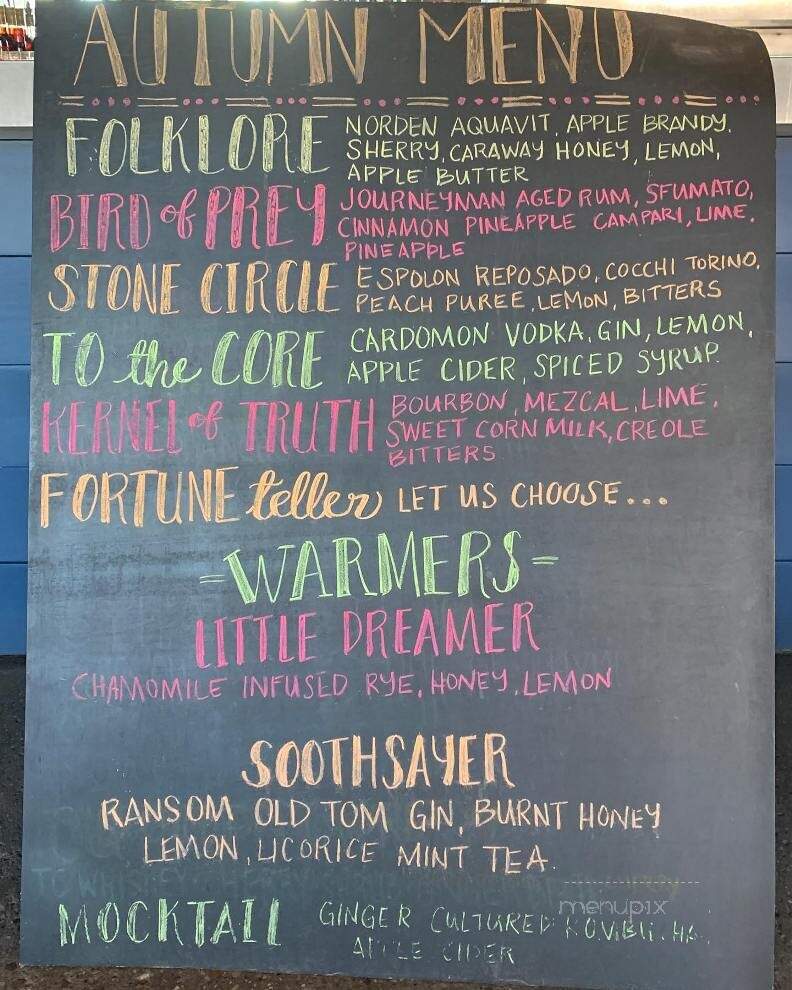 AUTUMN MENU
FOLKLORE NORDEN AQUAVIT, APPLE BRANDY,
SHERRY, CARAWAY HONEY, LEMON,
APPLE BUTTER
BIRD of PREY JOURNEYMAN AGED RUM, SFUMATO,
CINNAMON PINEAPPLE CAMPARI, LIME,
PINEAPPLE
STONE CIRCLE ESPOLON REPOSADO, COCCHI TORINO,
PEACH PUREE, LEMON, BITTERS
TO the CORE CARDOMON VODKA, GIN, LEMON,
APPLE CIDER, SPICED SYRUP
KERNEL of TRUTH BOURBON, MEZCAL, LIME,
SWEET CORN MILK, CREOLE
BITTERS
FORTUNE teller LET US CHOOSE...
=WARMERS=
LITTLE DREAMER
CHAMOMILE INFUSED RYE, HONEY, LEMON
SOOTHSAYER
RANSOM OLD TOM GIN, BURNT HONEY
LEMON, LICORICE MINT TEA.
menupix
MOCKTAIL GINGER CULTURED
APPLE CIDER